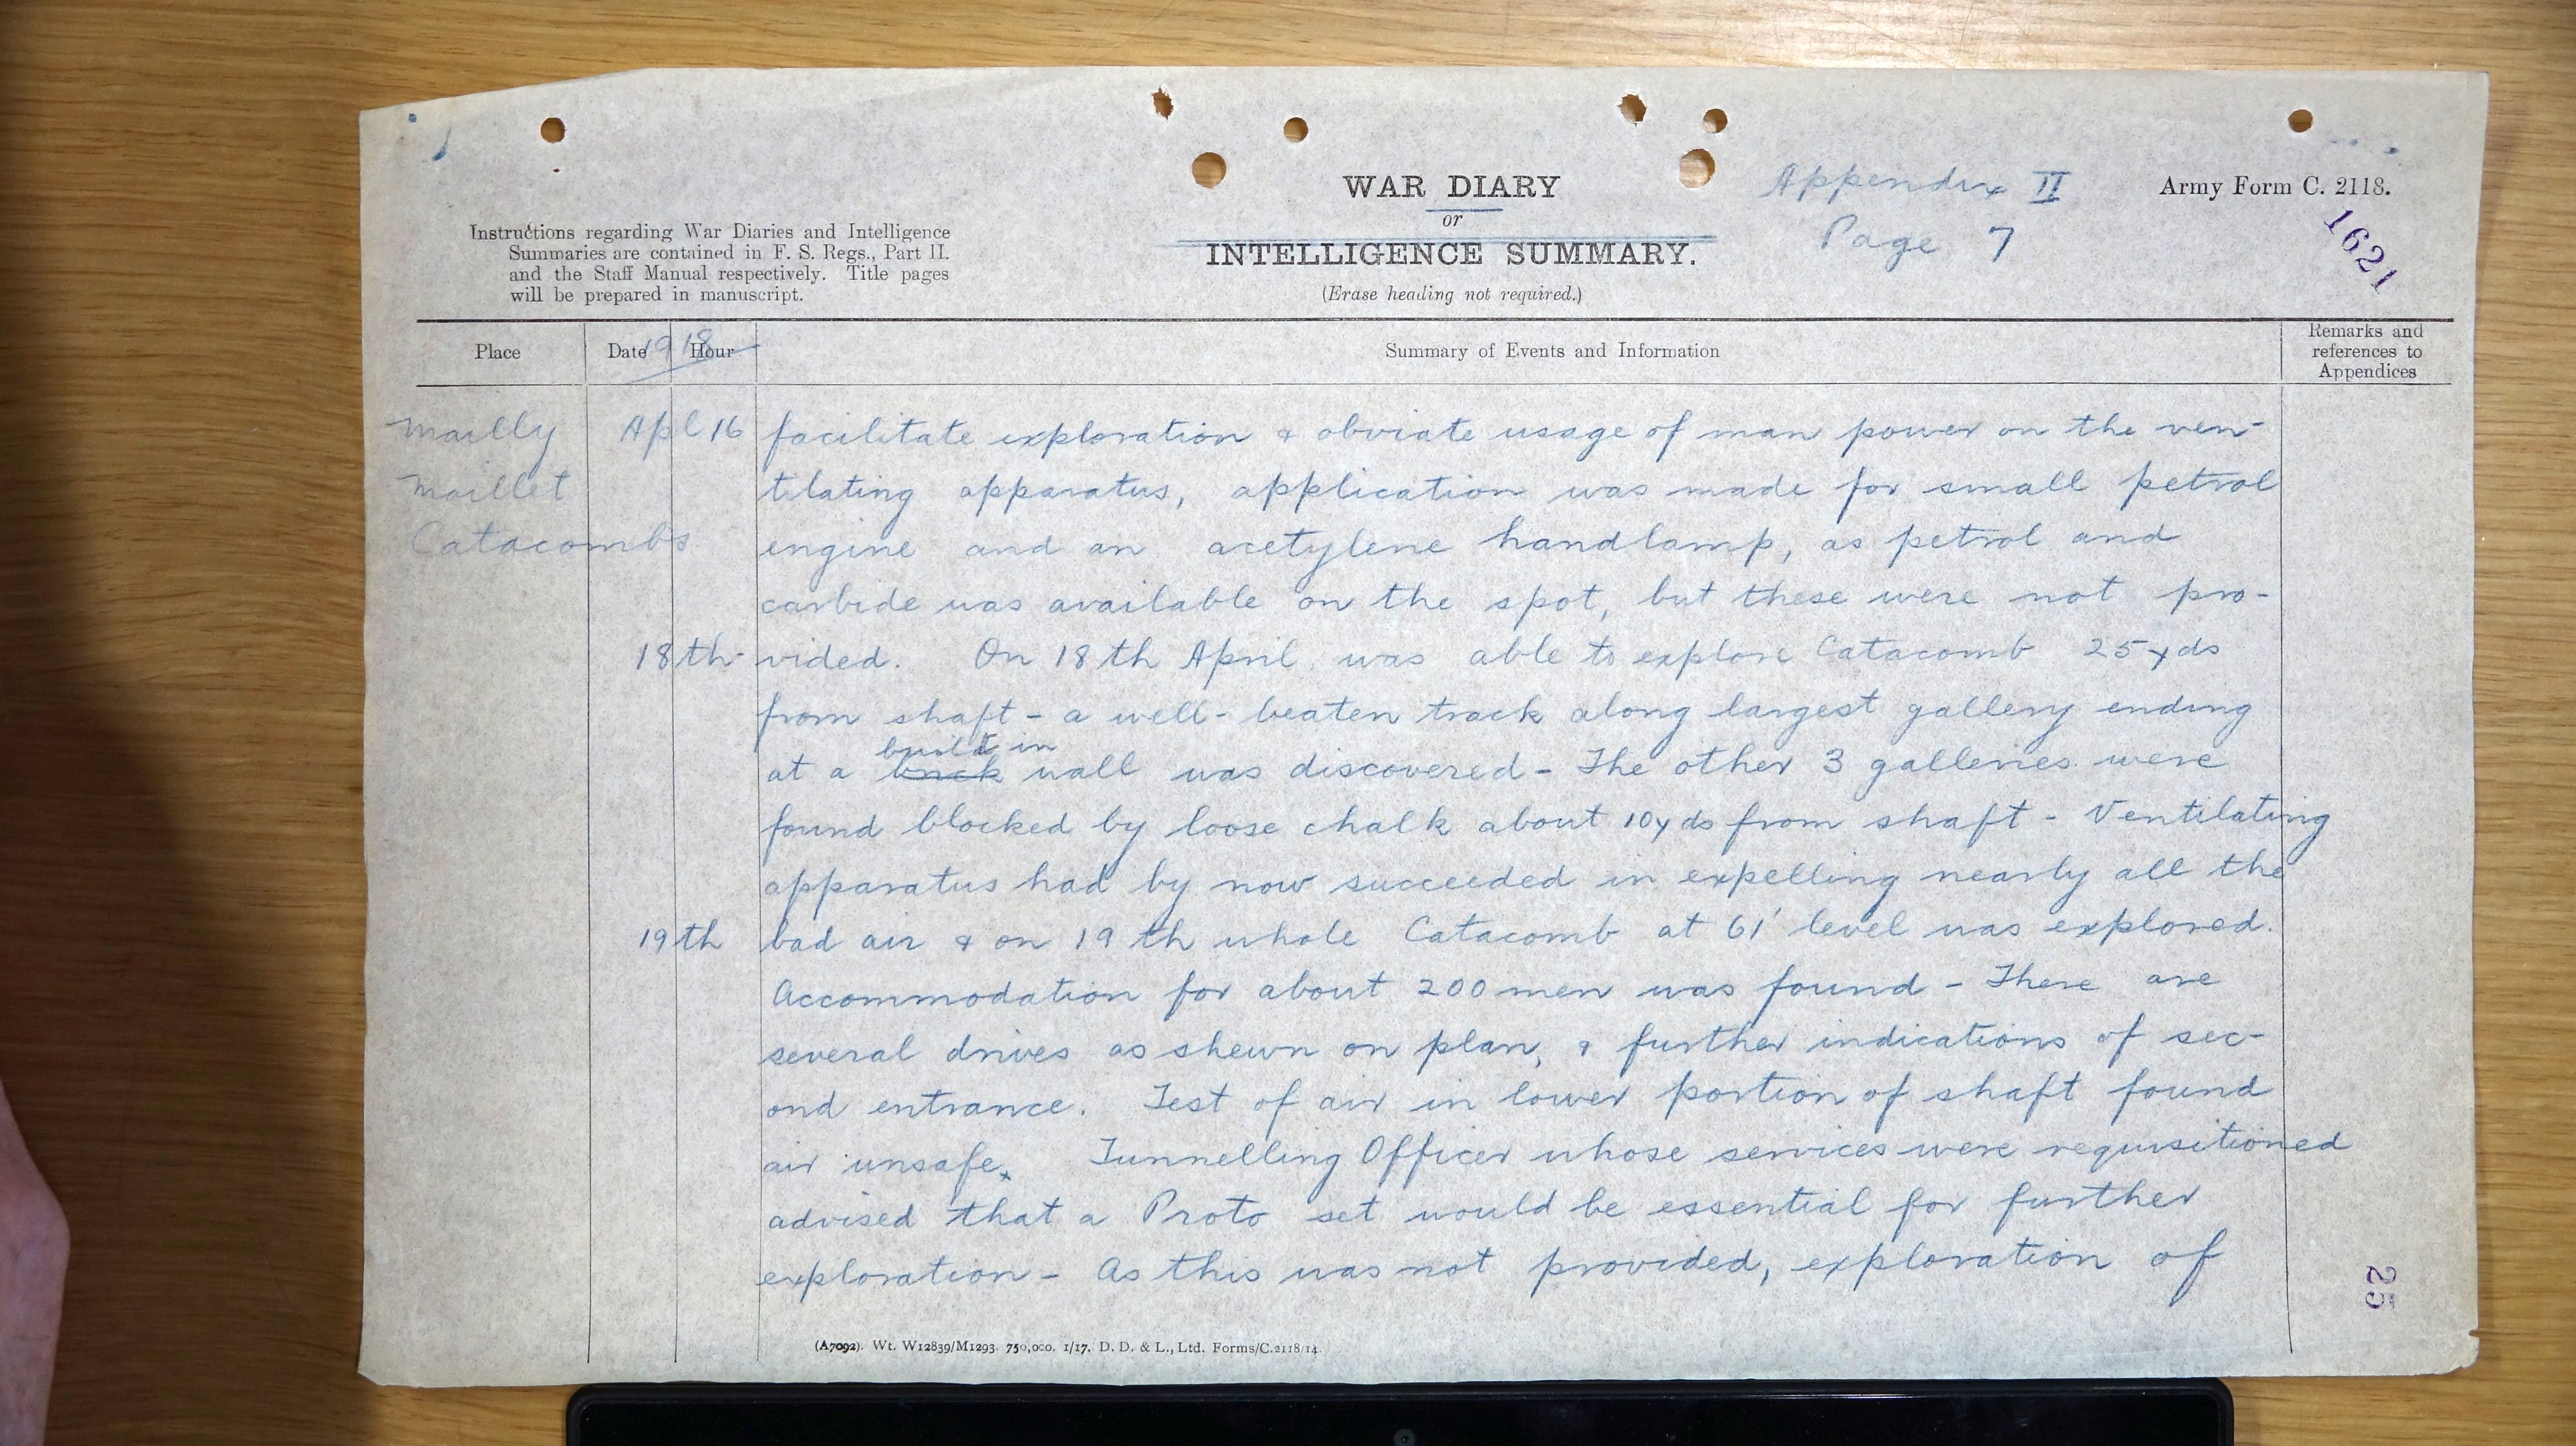 Appendix II
Page 7
Army Form C. 2118.
1621
WAR DIARY
or
INTELLIGENCE SUMMARY.
(Erase heading not required.)
Instructions regarding War Diaries and Intelligence
Summaries are contained in F. S. Regs., Part II.
and the Staff Manual respectively. Title pages
will be prepared in manuscript.
Place
Date Hour
1918
Summary of Events and Information
Remarks and
references to
Appendices
Mailly
Maillet
Catacombs
Apl 16 facilitate exploration & obviate usage of man power on the ven-
tilating apparatus, application was made for small petrol
engine and an acetylene handlamp, as petrol and
carbide was available on the spot, but these were not pro-
18th vided. On 18th April, was able to explore Catacomb 25 yds
from shaft - a well-beaten track along largest gallery ending
built in
at a brick wall was discovered - The other 3 galleries were
found blocked by loose chalk about 10yds from shaft - Ventilating
apparatus had by now succeeded in expelling nearly all the
19th bad air & on 19th whole Catacomb at 61' level was explored.
Accommodation for about 200 men was found - There are
several drives as shewn on plan, & further indications of sec-
ond entrance. Test of air in lower portion of shaft found
air unsafe. Tunnelling Officer whose services were requisitioned
advised that a Proto set would be essential for further
exploration - As this was not provided, exploration of
25
(A7092). Wt. W12839/M1293. 750,000. 1/17. D. D. & L., Ltd. Forms/C.2118/14.